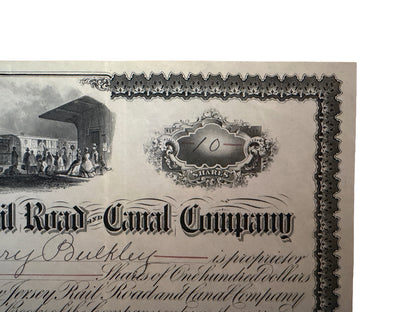 10
SHARES
il Road AND Canal Company
ry Bulkley is proprietor
Shares of One hundred dollars
Jersey Rail Road and Canal Company